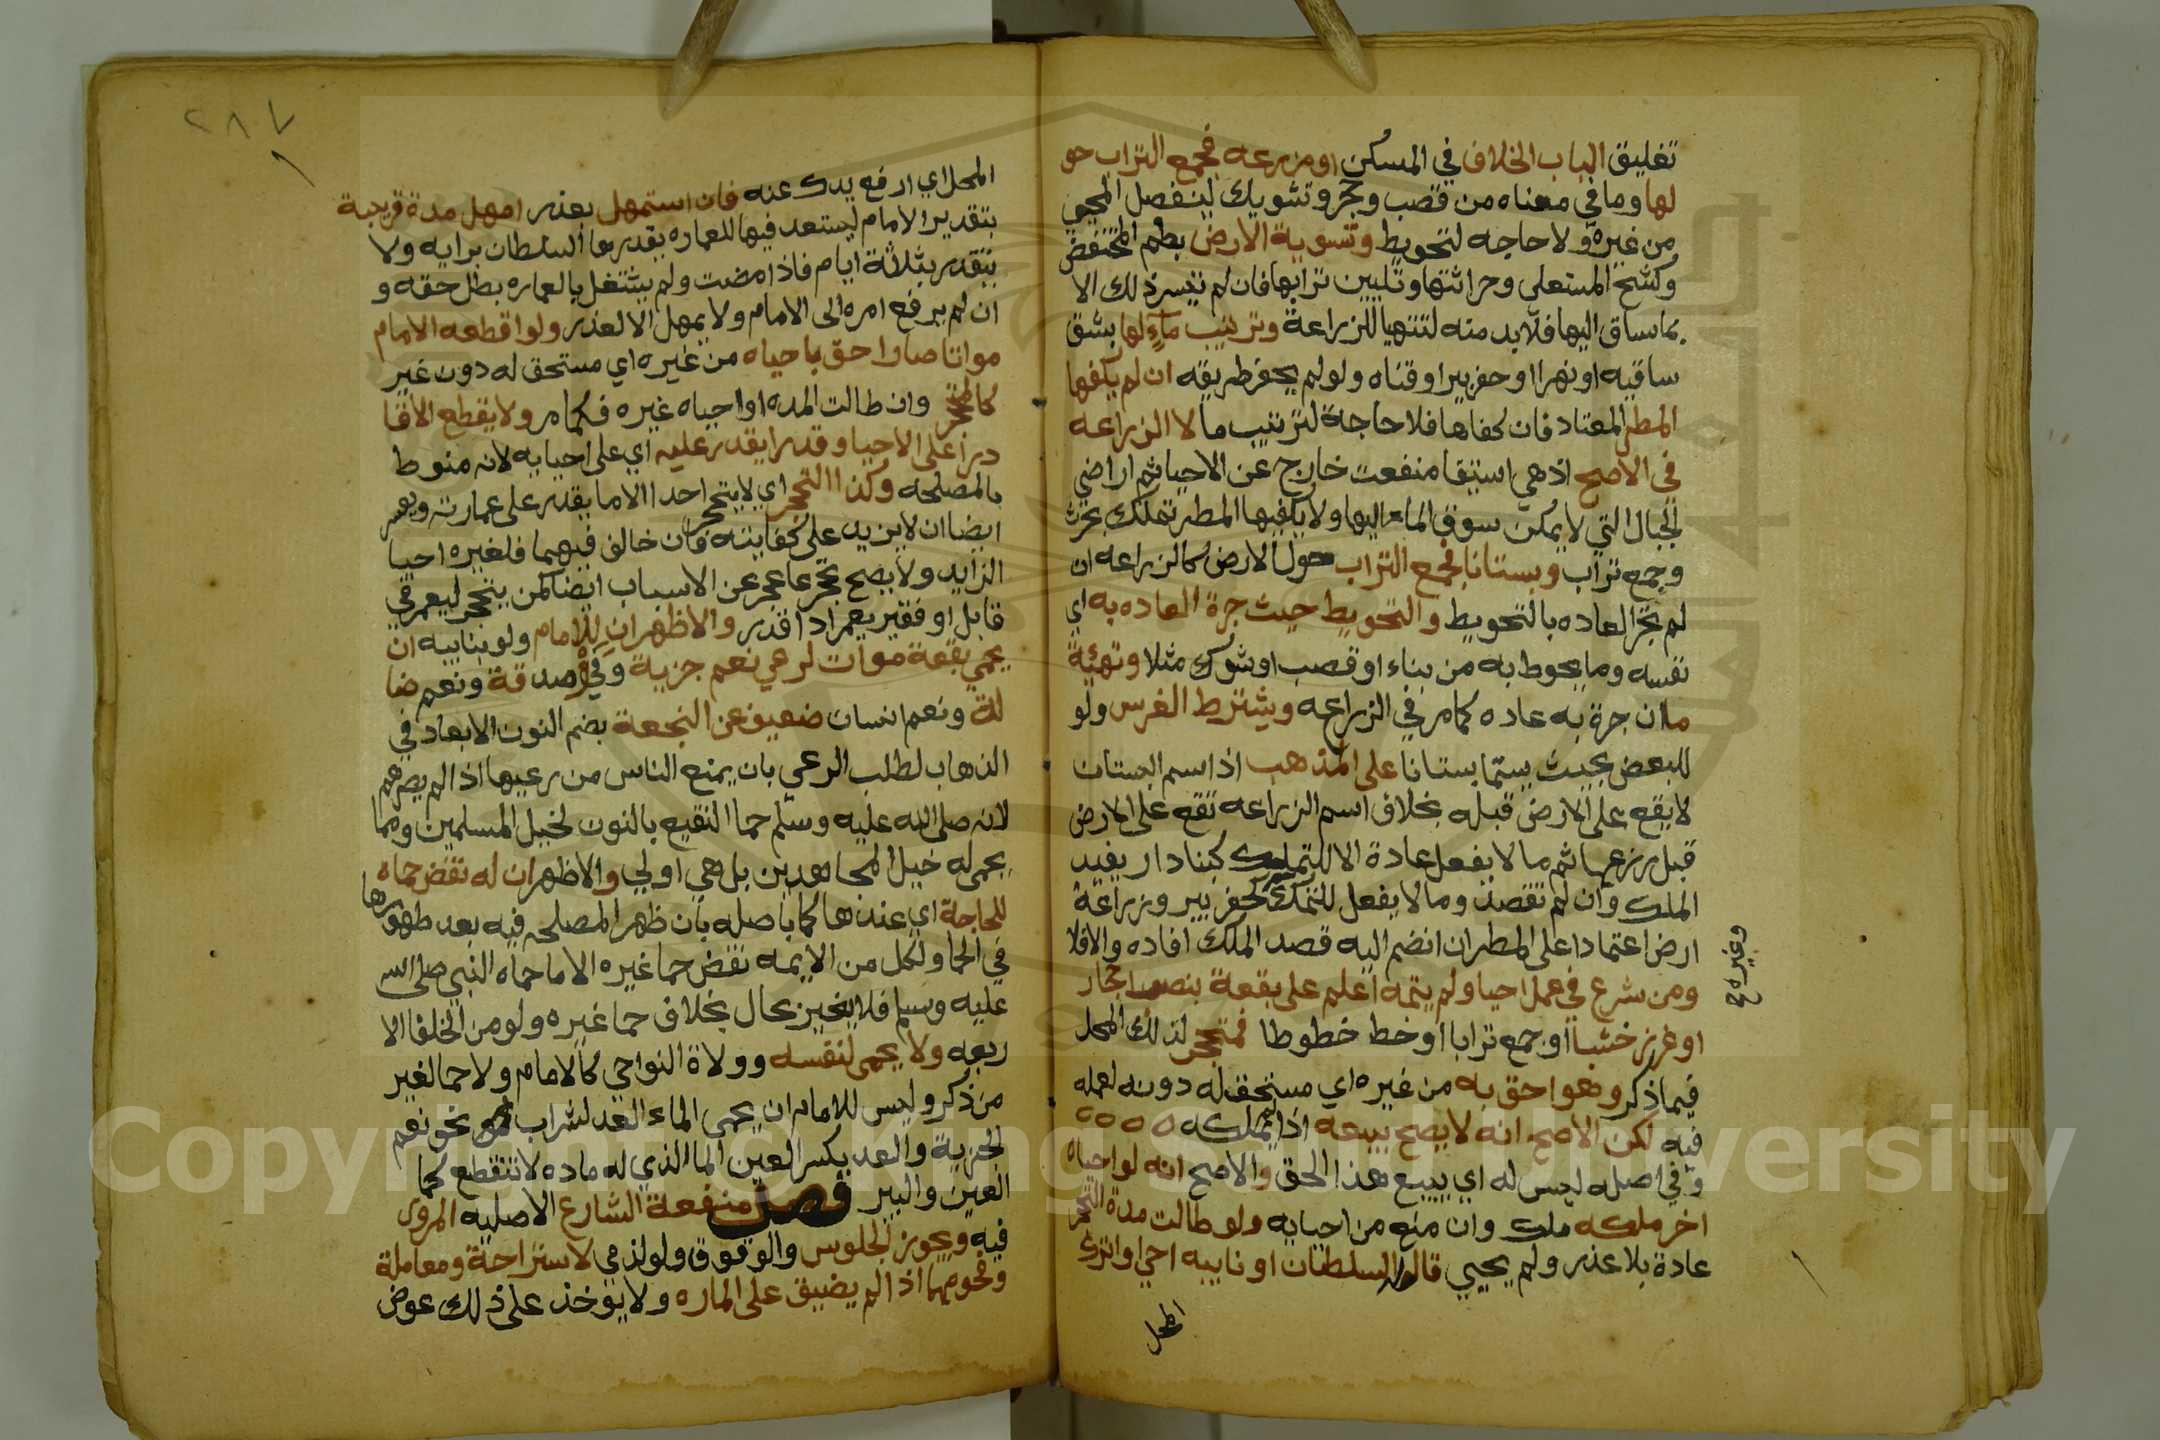 تغليق الباب الخلاف في المسكن او مزرعه فجمع التراب حو
لها وما في معناه من قصب وحجر وتشويك لينفصل المحيي
من غيره ولا حاجه لتحويط وتسوية الارض بطم المنخفض
وكشح المستعلي وحراثتها وتليين ترابها فان لم تتيسر ذلك الا
بما ساق اليها فلا بد منه لتتهيا للزراعة وترتيب ماء لها بشق
ساقيه او نهرا او حفر بير او قناه ولو لم يحفر طريقه ان لم يكفها
المطر المعتاد فان كفاها فلا حاجة لترتيب ما لا الزراعه
في الاصح اذ هي استيفا منفعت خارج عن الاحيا ثم اراضي
الجبال التي لا يمكن سوق الماء اليها ولا يكفيها المطر تملك بحرث
وجمع تراب وبستانا فجمع التراب حول الارض كالزراعه ان
لم تجر العاده بالتحويط والتحويط حيث جرة العاده به اي
نفسه وما يحوط به من بناء او قصب او شوك مثلا وتهيئة
ما ان جرة به عاده كما مر في الزراعه ويشترط الغرس ولو
للبعض بحيث يسمى بستانا على المذهب اذ اسم البستان
لا يقع على الارض قبله بخلاف اسم الزراعه تقع على الارض
قبل زرعها ثم ما لا يفعل عادة الا للتملك كبنا دار يفيد
الملك وان لم تقصد وما لا يفعل للتملك كحفر بير وزراعة
ارض اعتمادا على المطر ان انضم اليه قصد الملك افاده والا فلا
ومن شرع في عمل احيا ولم يتمه اعلم على بقعة بنصب احجار
او غرز خشبا او جمع ترابا او خط خطوطا فمتحجر لذلك المحل
فيما ذكر وهو احق به من غيره اي مستحق له دونه لعمله
فيه لكن الاصح انه لا يصح بيعه اذ لم يملكه
وفي اصله ليس له اي يبيع هذا الحق والاصح انه لو احياه
اخر ملكه ملك وان منع من احيايه ولو طالت مدة التحجر
عادة بلا عذر ولم يحيي قال له السلطان او نايبه احي او اترك
المحل
وغيره ع
٢٨٧
المحل اي ارفع يدك عنه فان استمهل بعذر امهل مدة قريبة
بتقدير الامام ليستعد فيها للعماره يقدرها السلطان برايه ولا
يتقدر بثلثة ايام فاذا مضت ولم يشتغل بالعماره بطل حقه و
ان لم يرفع امره الى الامام ولا يمهل الا لعذر ولو اقطعه الامام
مواتا صار احق باحياه من غيره اي مستحق له دون غير
كالمتحجر وان طالت المده او احياه غيره فكما مر ولا يقطع الا قا
درا على الاحيا وقدرا يقدر عليه اي على احيايه لانه منوط
بالمصلحه وكذا التحجر اي لا يتحجر احد الا ما يقدر على عمارته ويعبر
ايضا ان لا يزيد على كفايته فان خالف فيهما فلغيره احيا
الزايد ولا يصح تحجر عاجز عن الاسباب ايضا كمن يتحجر ليعمر في
قابل او فقير يعمر اذا قدر والاظهر ان للامام ولو بنايبه ان
يحمي بقعة موات لرعي نعم جزية وفي وصدقة ونعم ضا
لة ونعم انسان ضعيف عن النجعة بضم النون الابعاد في
الذهاب لطلب الرعي بان يمنع الناس من رعيها اذا لم يضرهم
لانه صلى الله عليه وسلم حما النقيع بالنون لخيل المسلمين ومما
يحمى له خيل المجاهدين بل هي اولي والاظهر ان له نقض حماه
للحاجة اي عندها كما باصله بان ظهر المصلحه فيه بعد ظهورها
في الحما ولكل من الايمه نقض حما غيره الا ما حماه النبي صلى الله
عليه وسلم فلا يغير بحال بخلاف حما غيره ولو من الخلفا الا
ربعه ولا يحمى لنفسه وولاة النواحي كالامام ولا حما لغير
من ذكر وليس للامام ان يحمى الماء العد لشراب نحو نعم
الجزية والعد بكسر العين الما الذي له ماده لا تنقطع كما
العين والبير فصل منفعة الشارع الاصليه المرور
فيه ويجوز الجلوس والوقوق ولو لذمي لاستراحة ومعاملة
ونحوهما اذا لم يضيق على الماره ولا يوخذ على ذلك عوض
Copyright © King Saud University